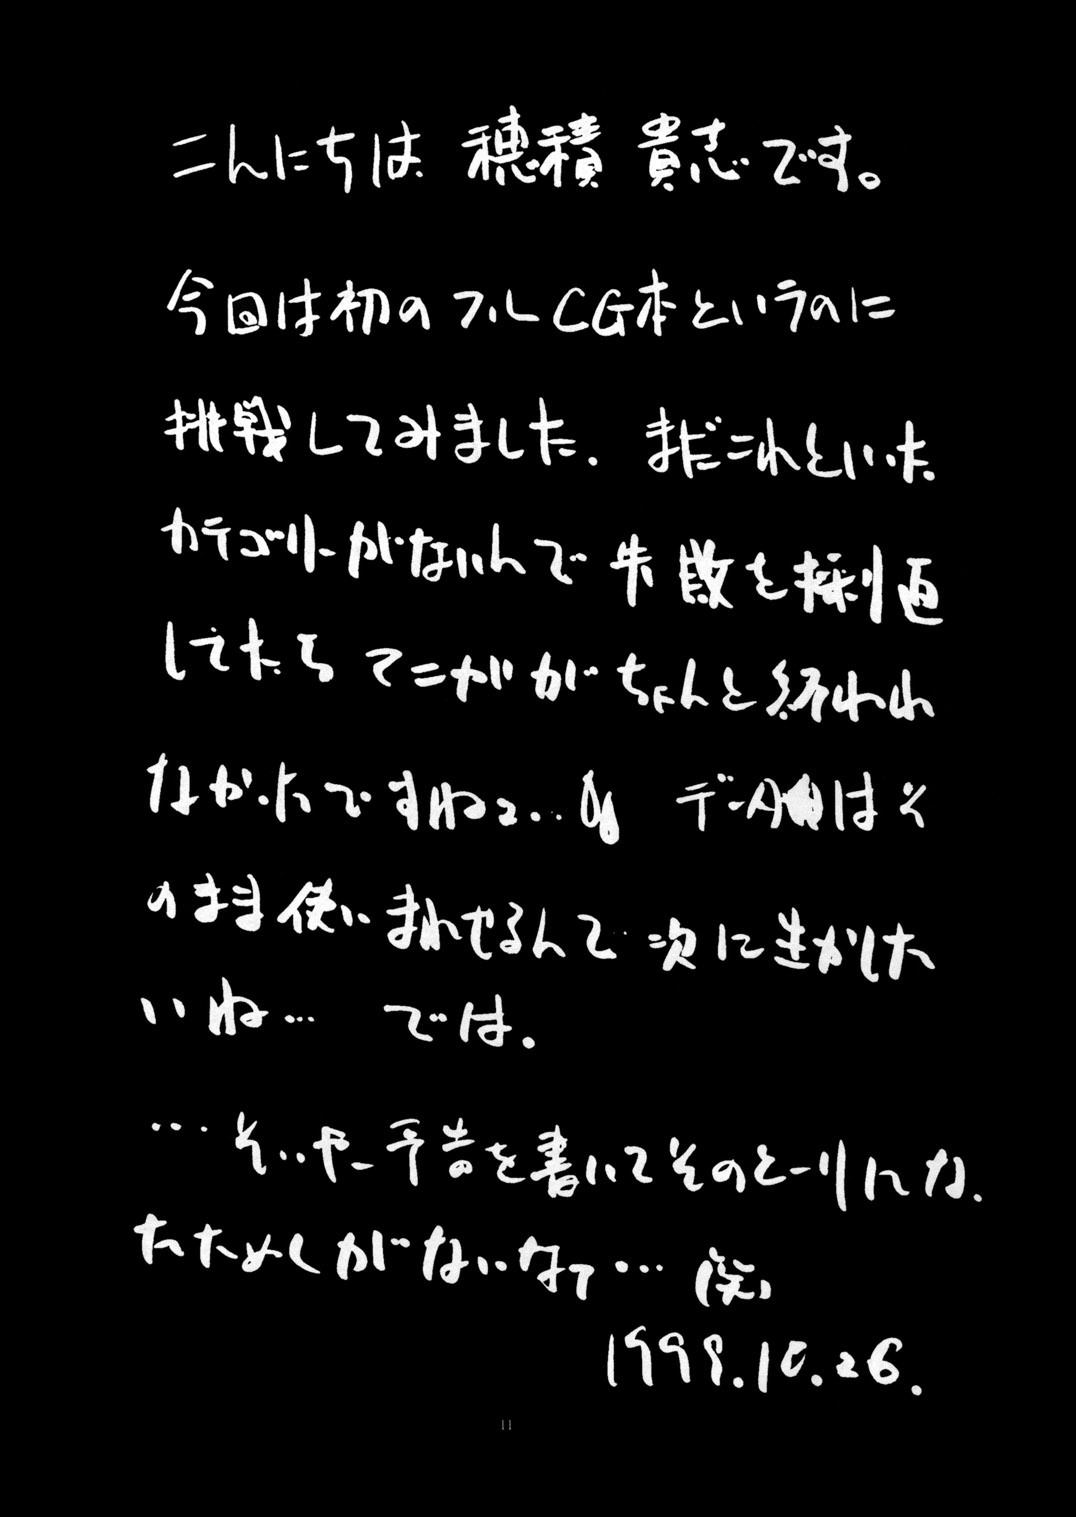 こんにちは 穂積 貴志です。
今回は初のフルCG本というのに
挑戦してみました. まだこれといった
カテゴリーがないんで 失敗を繰り返
してたら てこがが ちょんと 終われ
なかったですねェ… データは そ
のまま使いまわせるんで 次に生かした
いね… では.
…そいやー予告を書いてそのとーりにな.
たためしがないなァ… (笑)
1998.10.26.
11